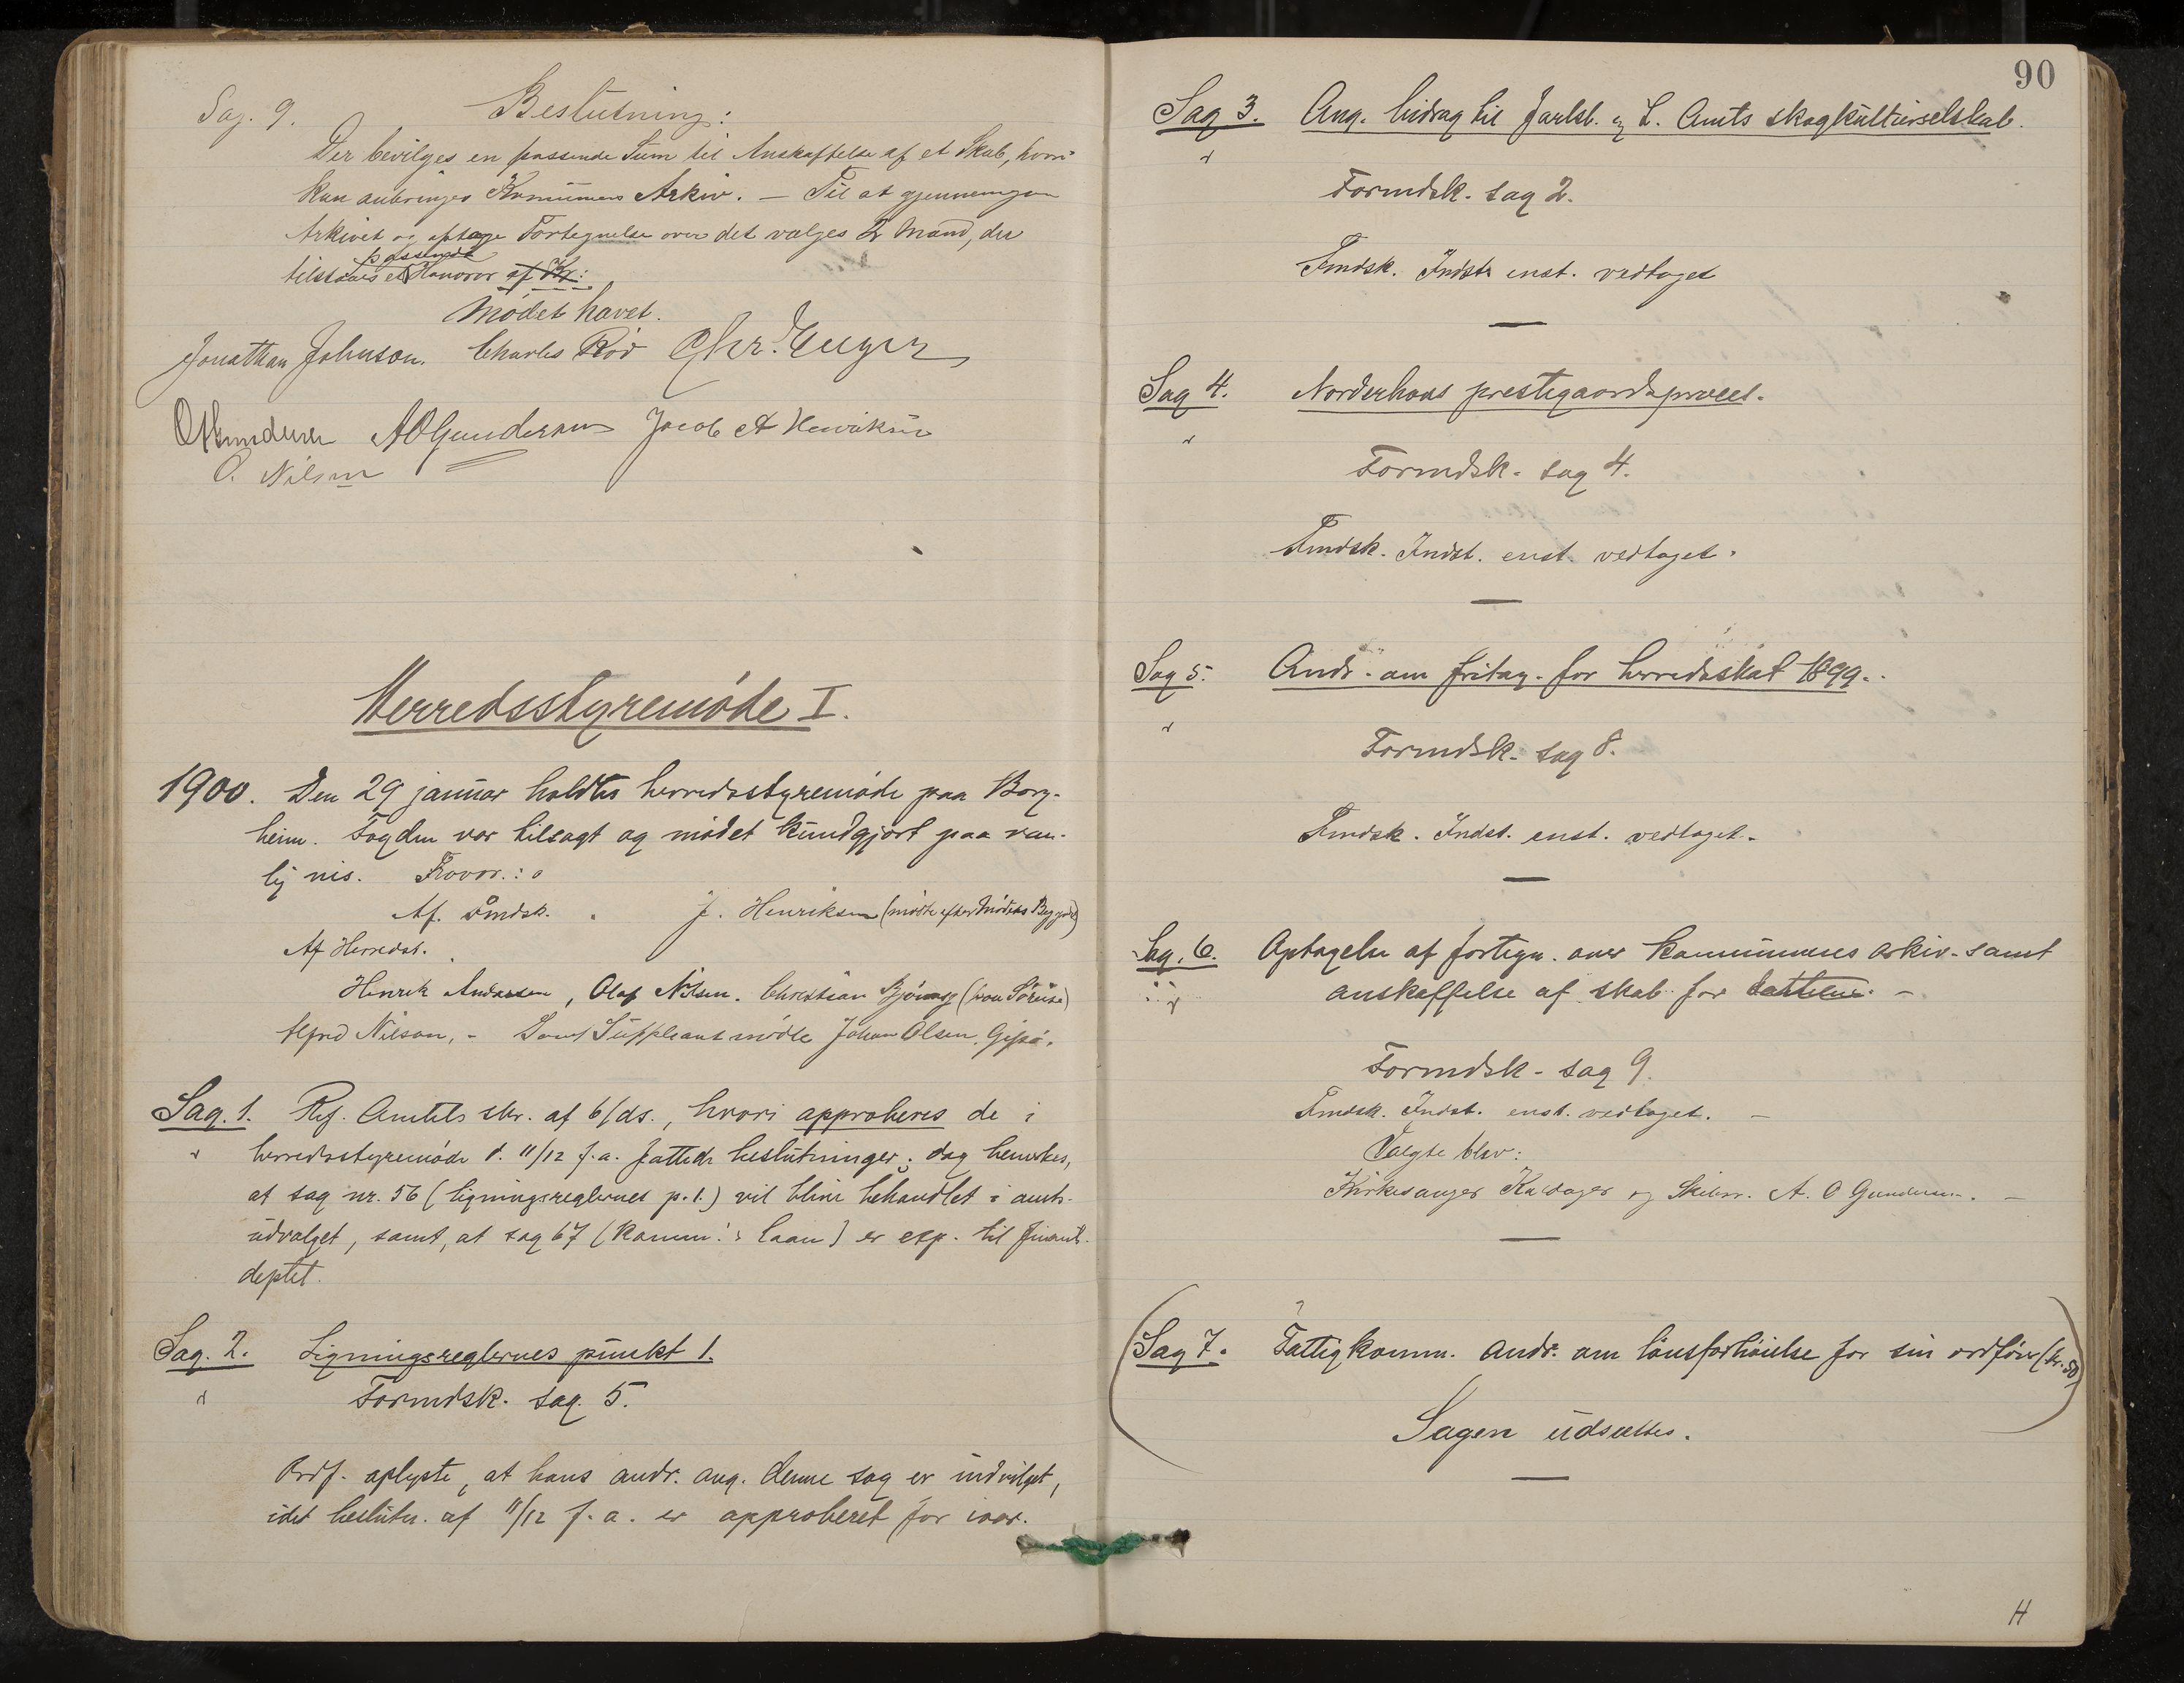 Sag. 9. Beslutning:
Der bevilges en passende Sum til Anskaffelse af et Skab, hvori
kan anbringes Kommunens Arkiv. — Til at gjennemgaa
Arkivet og optage Fortegnelse over det vælges 2 Mænd, der
passende
tilstaaes et Honorar af Kr:
Mødet hævet.
Jonathan Johnson. Charles Röd Chr.
A O Gundersen Jacob A Henriksen
O. Nilsen
Herredsstyremöde I.
1900. Den 29 januar holdtes herredsstyremöde paa Borg-
heim. Fogden var tilsagt og mödet kundgjort paa van-
lig vis. Fravær.:
Af Fmdsk. J. Henriksen (mødte efter Mødets Begynd)
Af Herredst.
Henrik Andersen, Olaf Nilsen. Christian
Alfred Nilson, - Som Suppleant mödte Johan Olsen,
Sag. 1. Ref. Amtets skr. af 6/ds., hvori approberes de i
herredsstyremöde d. 11/12 f.a. fattede beslutninger; dog bemerkes,
at sag nr. 56 (ligningsreglernes p. 1.) vil blive behandlet i amts-
udvalget, samt, at sag 67 (komm:s laan) er exp. til finants-
deptet.
Sag. 2. Ligningsreglernes punkt 1.
Formdsk. sag. 5.
Ordf. oplyste, at hans andr. ang. denne sag er indvilget,
idet beslutn. af 11/12 f.a. er approberet for iaar.
90
Sag 3. Ang. bidrag til Jarlsb. og L. Amts skogkulturselskab.
Formdsk. sag 2.
Fmdsk. Indst. enst. vedtaget
Sag 4. Nøtterhøns prestegaardsproces.
Formdsk. sag 4.
Fmdsk. Indst. enst. vedtaget.
Sag 5. Andr. om fritag. for herredsskat 1899.
Formdsk. sag 8.
Fmdsk. Indst. enst. vedtaget.
Sag. 6. Optagelse af fortegn. over kommunens arkiv. samt
anskaffelse af skab for
Formdsk. sag 9.
Fmdsk. Indst. enst. vedtaget. —
Valgte blev:
Kirkesanger og Skibsr. A. O Gundersen. —
Sag 7. Fattigkomm. andr. om lönsforhöielse for sin ordförer (kr. 50)
Sagen udsættes.
H